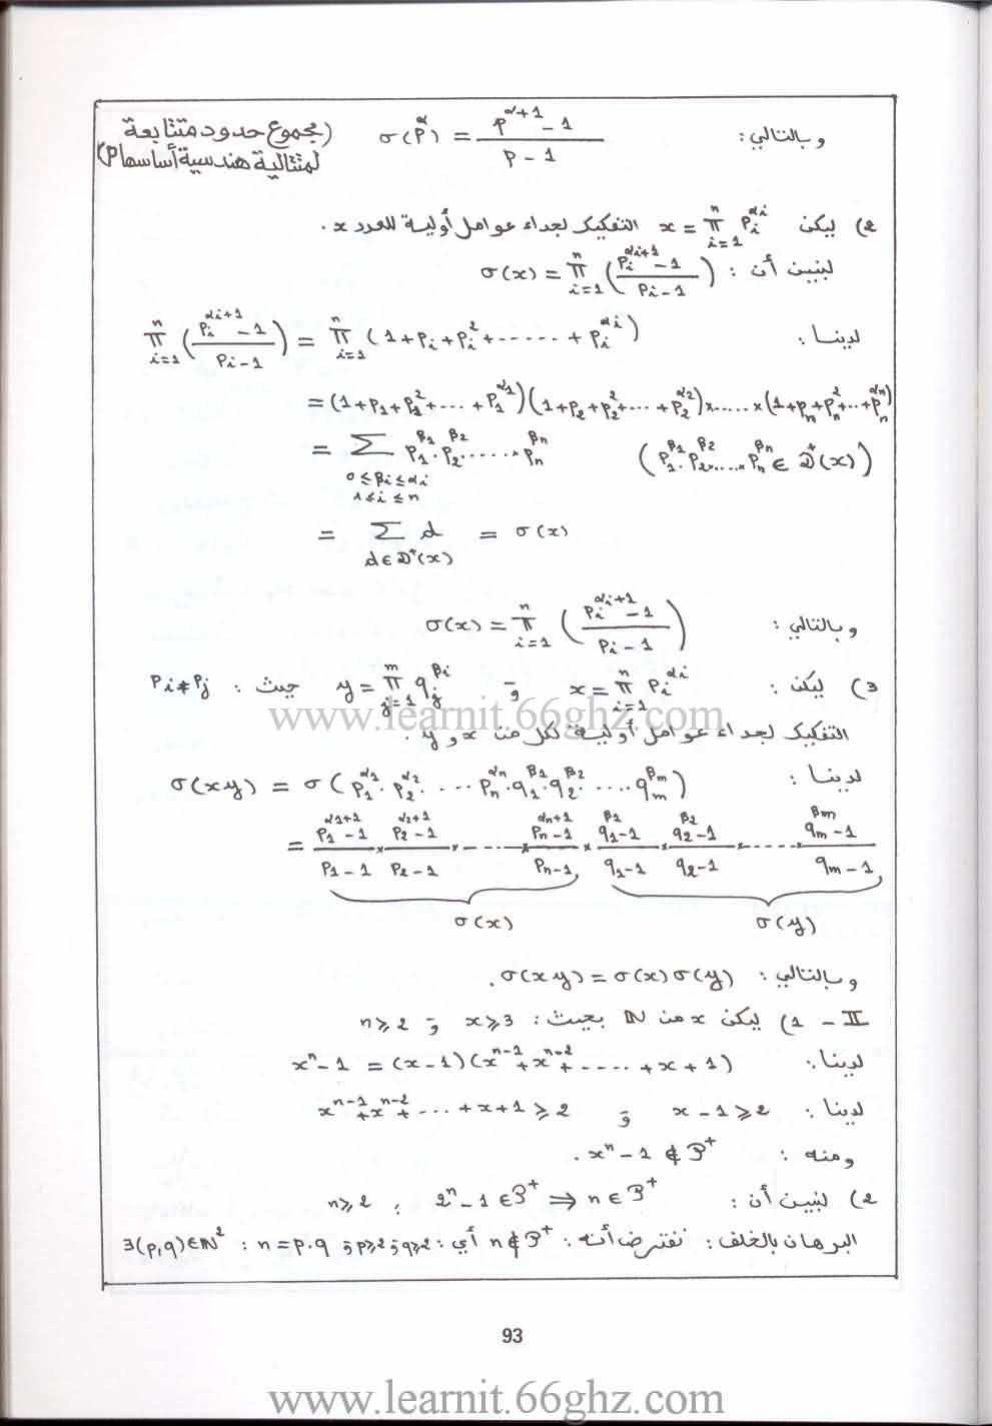 وبالتالي : σ(p^α) = (p^(α+1) - 1)/(p - 1) (مجموع حدود متتابعة
لمتتالية هندسية أساسها p)
2) ليكن x = π_{i=1}^{n} p_i^{αi} التفكيك لجداء عوامل أولية للعدد x .
لنبين أن : σ(x) = π_{i=1}^{n} ((p_i^{αi+1} - 1)/(p_i - 1))
لدينا : π_{i=1}^{n} ((p_i^{αi+1} - 1)/(p_i - 1)) = π_{i=1}^{n} (1+p_i+p_i^2+ ...... + p_i^{αi})
= (1+p_1+p_1^2+ ... +p_1^{α1})(1+p_2+p_2^2+ ... +p_2^{α2})x.....x(1+p_n+p_n^2+..+p_n^{αn})
= Σ_{0≤βi≤αi, 1≤i≤n} p_1^{β1}.p_2^{β2}......p_n^{βn} (p_1^{β1}.p_2^{β2}.....p_n^{βn} ∈ D^+(x))
= Σ_{d∈D^+(x)} d = σ(x)
وبالتالي : σ(x) = π_{i=1}^{n} ((p_i^{αi+1} - 1)/(p_i - 1))
3) ليكن : x = π_{i=1}^{n} p_i^{αi} و y = π_{j=1}^{m} q_j^{βi} حيث : p_i ≠ p_j
التفكيك لجداء عوامل أولية لكل من x و y .
لدينا : σ(xy) = σ(p_1^{α1}.p_2^{α2}. ... p_n^{αn}.q_1^{β1}.q_2^{β2}. .... q_m^{βm})
= (p_1^{α1+1} - 1)/(p_1 - 1) x (p_2^{α2+1} - 1)/(p_2 - 1) x ... x (p_n^{αn+1} - 1)/(p_n - 1) x (q_1^{β1} - 1)/(q_1 - 1) x (q_2^{β2} - 1)/(q_2 - 1) x ..... x (q_m^{βm} - 1)/(q_m - 1)
σ(x) σ(y)
وبالتالي : σ(xy) = σ(x)σ(y) .
II - 1) ليكن x من ℕ بحيث : x ≥ 3 و n ≥ 2
لدينا : x^n - 1 = (x-1)(x^{n-1}+x^{n-2}+ ..... +x+1)
لدينا : x - 1 ≥ 2 و x^{n-1}+x^{n-2}+ ... +x+1 ≥ 2
ومنه : x^n - 1 ∉ P^+ .
2) لنبين أن : 2^n - 1 ∈ P^+ ⇒ n ∈ P^+ ; n ≥ 2
البرهان بالخلف : نفترض أنه : n ∉ P^+ أي : ∃(p,q)∈ℕ^2 : n = p.q ; p≥2 ; q≥2 :
93
www.learnit.66ghz.com
www.learnit.66ghz.com